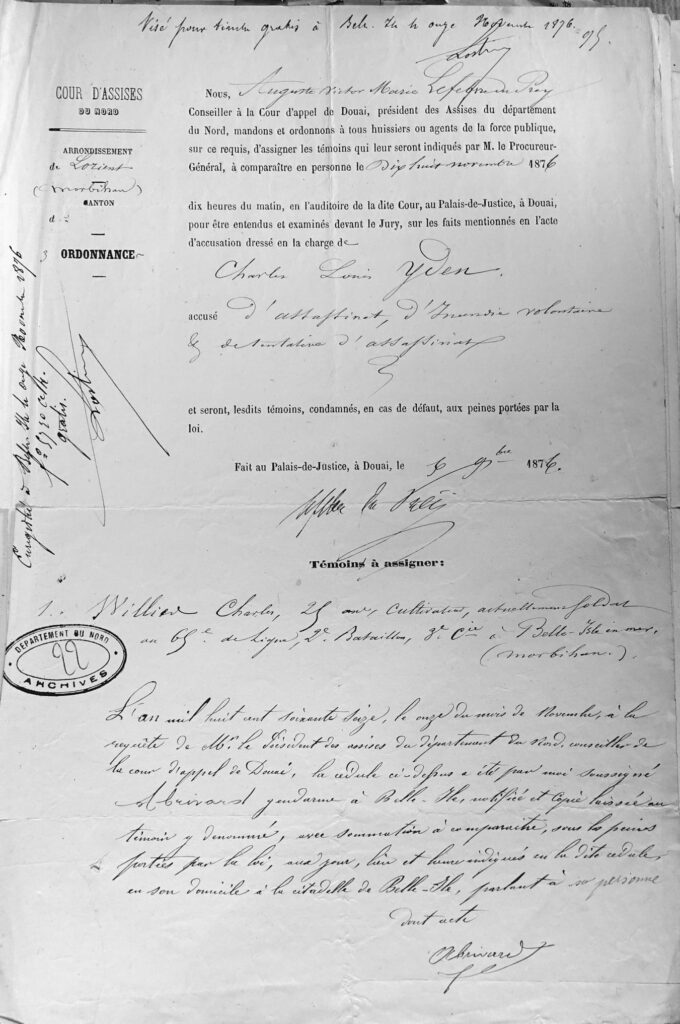 Visé pour timbre gratis à Belle-Ile le onze Novembre 1876.
COUR D'ASSISES
DU NORD
ARRONDISSEMENT
de Lorient
(Morbihan)
CANTON
d
3 ORDONNANCE
Enregistré à Belle-Ile le onze Novembre 1876
gratis.
Nous, Auguste Victor Marie Lefebvre du Prey
Conseiller à la Cour d'appel de Douai, président des Assises du département
du Nord, mandons et ordonnons à tous huissiers ou agents de la force publique,
sur ce requis, d'assigner les témoins qui leur seront indiqués par M. le Procureur-
Général, à comparaître en personne le Dix huit novembre 1876
dix heures du matin, en l'auditoire de la dite Cour, au Palais-de-Justice, à Douai,
pour être entendus et examinés devant le Jury, sur les faits mentionnés en l'acte
d'accusation dressé en la charge de
Charles Louis Yden.
accusé d'assassinat, d'Incendie volontaire
& de tentative d'assassinat
et seront, lesdits témoins, condamnés, en cas de défaut, aux peines portées par la
loi.
Fait au Palais-de-Justice, à Douai, le 5 9bre 1876.
Lefebvre du Prey
Témoins à assigner:
1. Charles, 25 ans, cultivateur, actuellement soldat
au 65e de Ligne, 2e Bataillon, 3e Cie à Belle-Isle en mer,
(Morbihan.)
DÉPARTEMENT DU NORD
22
ARCHIVES
L'an mil huit cent soixante seize, le onze du mois de Novembre, à la
requête de Mr. le Président des assises du département du Nord, conseiller de
la cour d'appel de Douai, la cédule ci-dessus a été par moi soussigné
Abrivard gendarme à Belle-Ile, notifiée et copie laissée au
témoin y dénommé, avec sommation à comparaître, sous les peines
portées par la loi, aux jour, lieu et heure indiqués en la dite cédule,
en son domicile à la citadelle de Belle-Ile, parlant à sa personne
dont acte
Abrivard